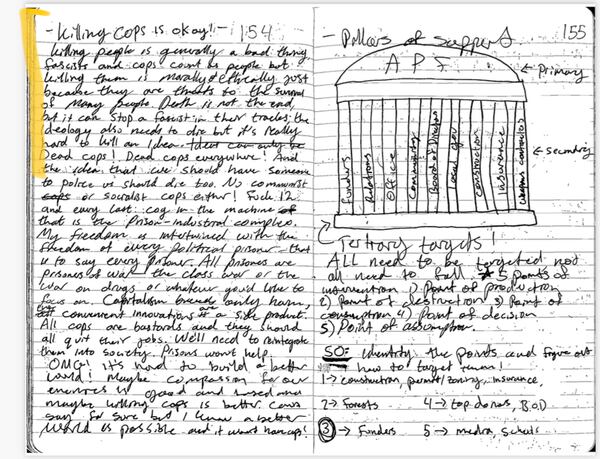 - Killing cops is okay! - 154
Killing people is generally a bad thing,
fascists and cops count as people but
killing them is morally & ethically just
because they are threats to the survival
of many people. Death is not the end,
but it can stop a fascist in their tracks; the
ideology also needs to die but it's really
hard to kill an idea.
Dead cops! Dead cops everywhere! And
the idea that we should have someone
to police us should die too. No communist
or socialist cops either! Fuck 12
and every last cog in the machine
that is the prison-industrial complex.
My freedom is intertwined with the
freedom of every political prisoner - that
is to say every prisoner. All prisoners are
prisoners of war the class war or the
war on drugs or whatever you'd like to
focus on. Capitalism breeds only harm,
convenient innovations a side product.
All cops are bastards and they should
all quit their jobs. We'll need to reintegrate
them into society. Prisons won't help
OMG! it's hard to build a better
world! Maybe compassion for our
enemies is good and
maybe killing cops is better. Can't
say for sure but I know a better
world is possible and it won't have cops!
- Pillars of support 155
APF
← Primary
Funders
Relations
Office
Community
Board of Directors
Local gov
Construction
Insurance
← secondary
Tertiary targets!
ALL need to be targeted not
all need to fall * 5 Points of
intervention 1) Point of production
2) Point of destruction 3) Point of
consumption 4) Point of decision
5) Point of assumption.
SO: identify the points and figure out
how to target them!
1 → construction, permit/zoning, insurance,
2 → Forests 4 → top donors, B.O.D
3 → Funders 5 → media, schools